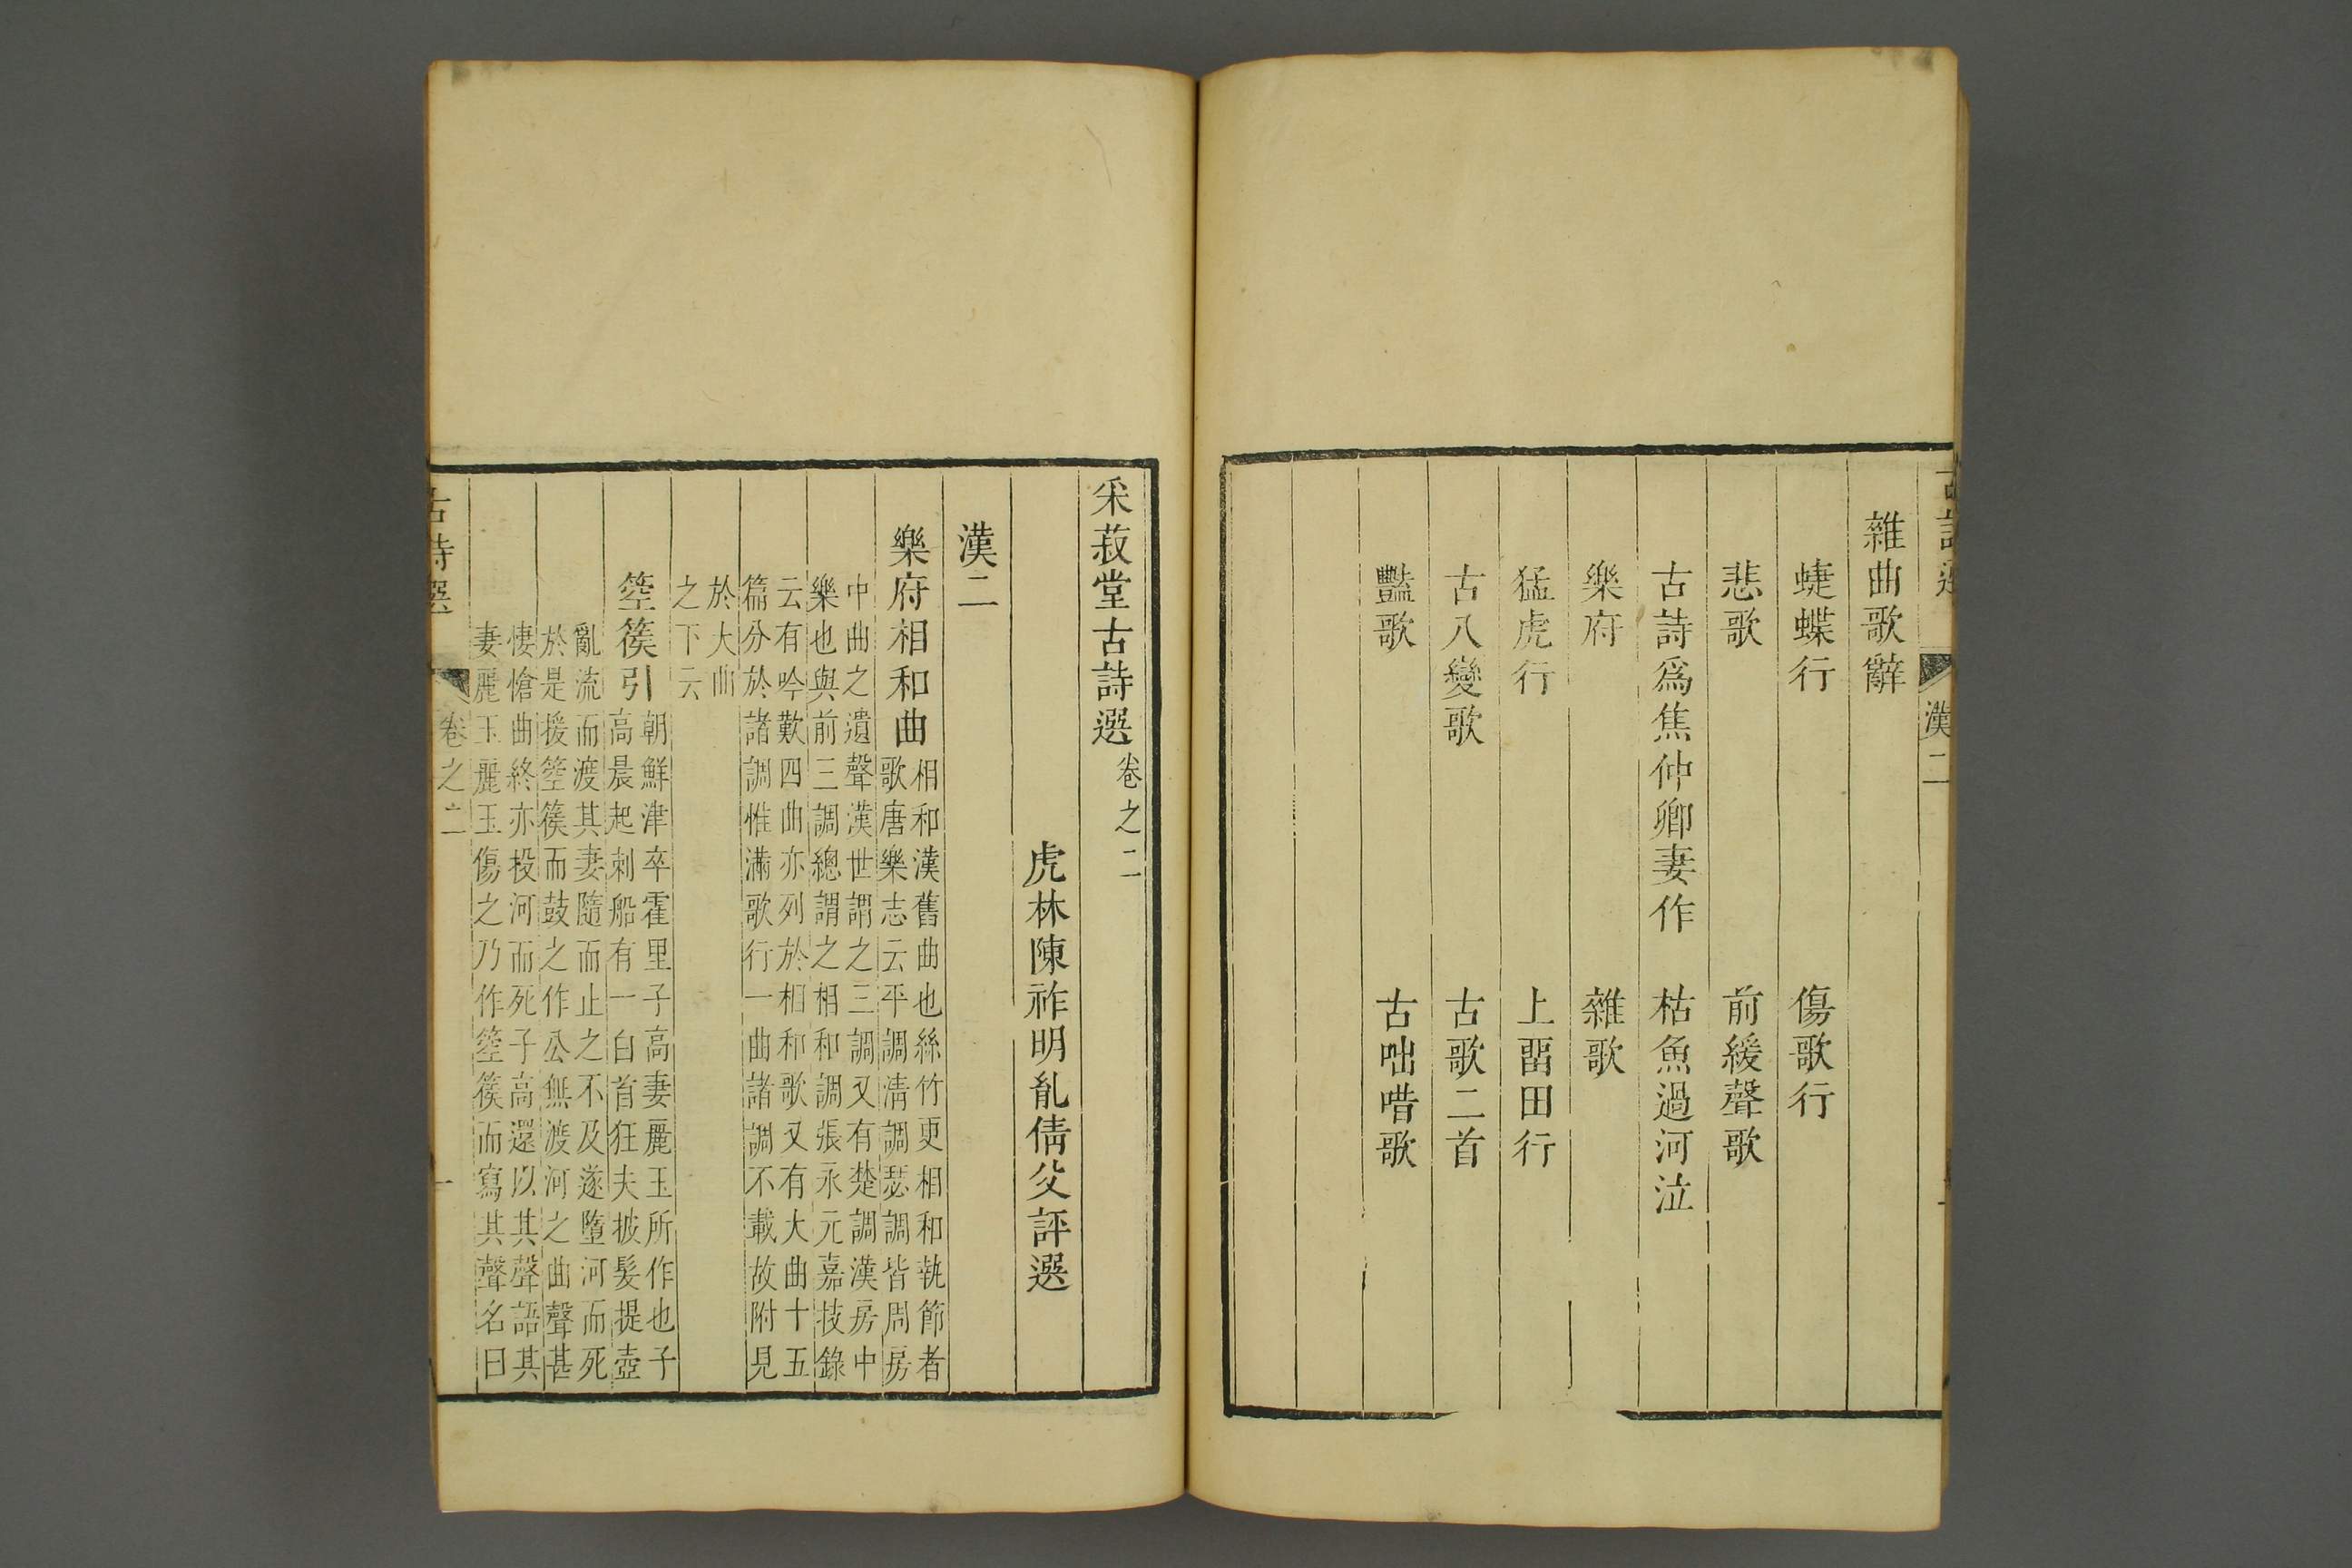 古詩選 漢二
雜曲歌辭
蜨蝶行 傷歌行
悲歌 前緩聲歌
古詩爲焦仲卿妻作 枯魚過河泣
樂府 雜歌
猛虎行 上畱田行
古八變歌 古歌二首
豔歌 古咄唶歌
采菽堂古詩選卷之二
虎林陳祚明胤倩父評選
漢二
樂府相和曲
相和漢舊曲也絲竹更相和執節者
歌唐樂志云平調淸調瑟調皆周房
中曲之遺聲漢世謂之三調又有楚調漢房中
樂也與前三調總謂之相和調張永元嘉技錄
云有吟歎四曲亦列於相和歌又有大曲十五
篇分於諸調惟滿歌行一曲諸調不載故附見
於大曲
之下云
箜篌引
朝鮮津卒霍里子高妻麗玉所作也子
高晨起刺船有一白首狂夫披髮提壺
亂流而渡其妻隨而止之不及遂墮河而死
於是援箜篌而鼓之作公無渡河之曲聲甚
悽愴曲終亦投河而死子高還以其聲語其
妻麗玉麗玉傷之乃作箜篌而寫其聲名曰
古詩選 卷之二 一